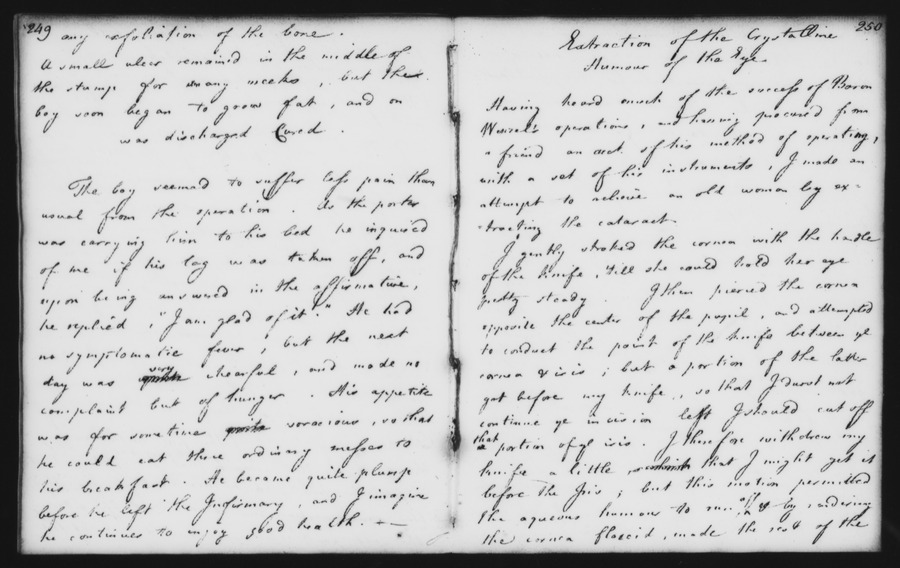 249
any exfoliation of the bone.
A small ulcer remained in the middle of
the stump for many weeks, but the
boy soon began to grow fat, and on
was discharged Cured.
The boy seemed to suffer less pain than
usual from the operation. As the porter
was carrying him to his bed he inquired
of me if his leg was taken off, and
upon being answered in the affirmative,
he replied, "I am glad of it." He had
no symptomatic fever, but the next
day was very chearful, and made no
complaint but of hunger. His appetite
was for sometime voracious, so that
he could eat three ordinary messes to
his breakfast. He became quite plump
before he left the Infirmary, and I imagine
he continues to enjoy good health.
250
Extraction of the Crystalline
Humour of the Eye
Having heard much of the success of Baron
Wenzel's operations, and having procured from
a friend an acct. of his method of operating,
with a set of his instruments, I made an
attempt to relieve an old woman by ex=
tracting the cataract
I gently stroked the cornea with the handle
of the knife, 'till she could hold her eye
pretty steady. I then pierced the cornea
opposite the center of the pupil, and attempted
to conduct the point of the knife between ye
cornea & iris; but a portion of the latter
got before my knife, so that I durst not
continue ye incision lest I should cut off
that
portion of ye iris. I therefore withdrew my
knife a little that I might get it
before the Iris; but this motion permitted
the aqueous humour to run off & by rendering
the cornea flaccid, made the rest of the